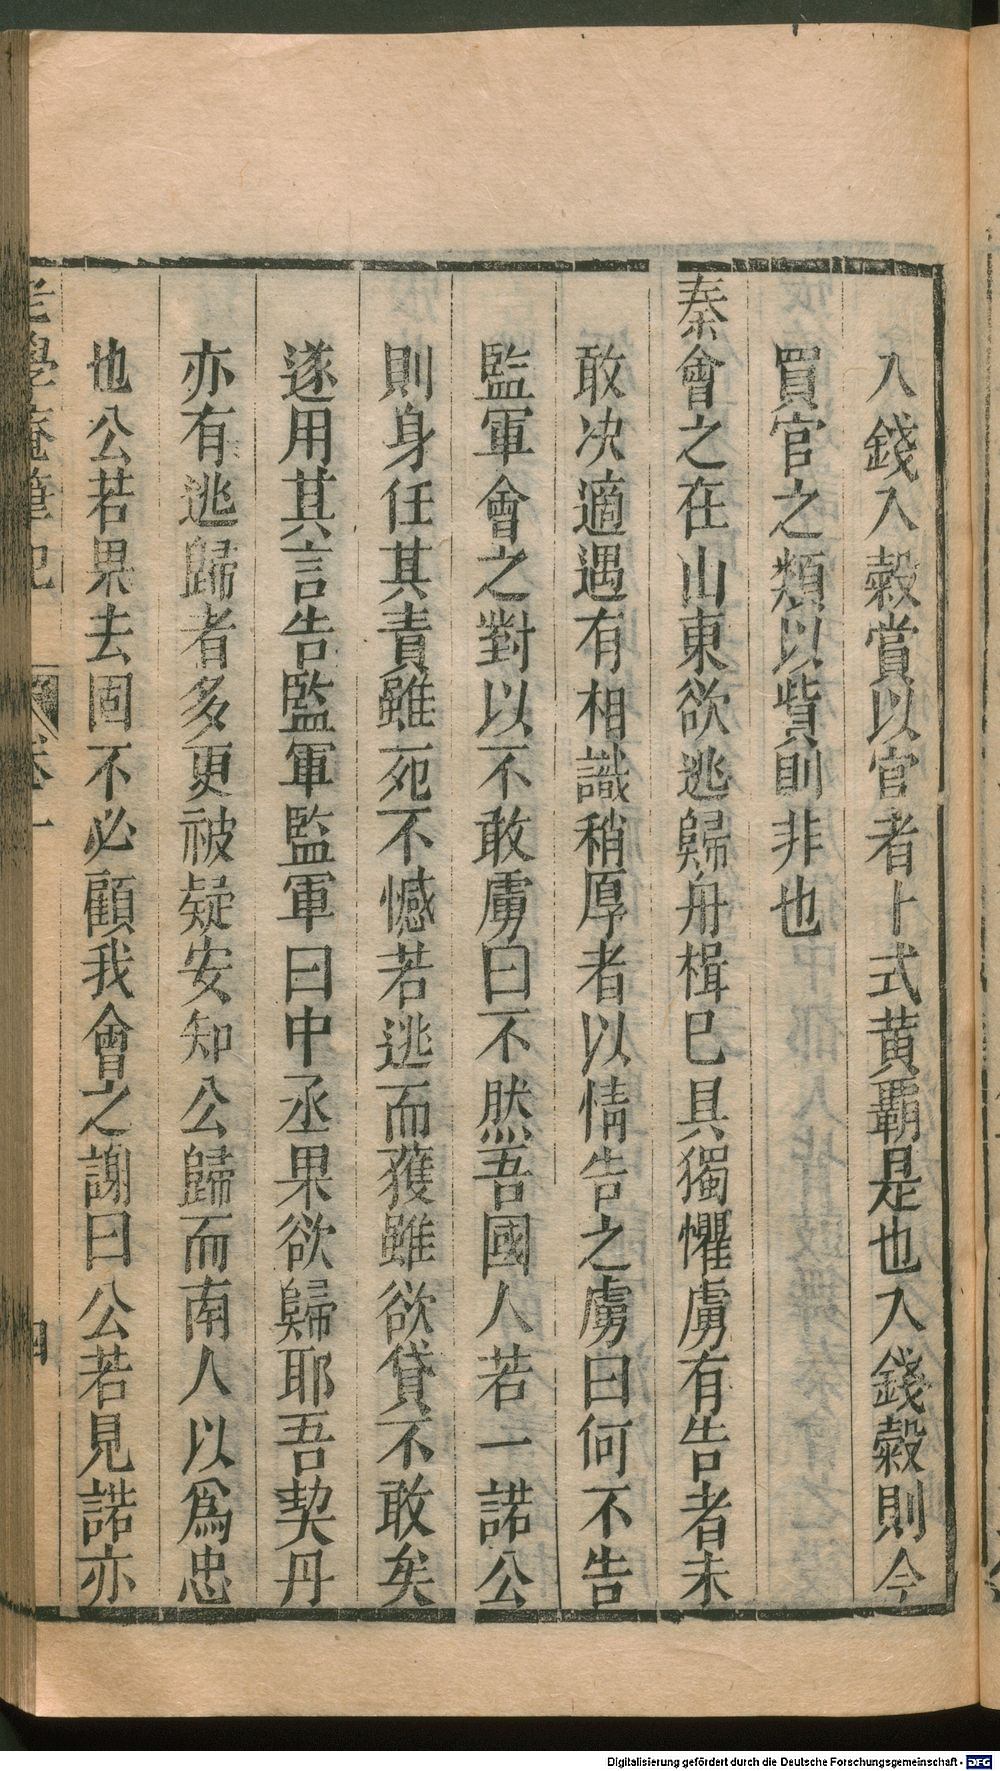 入錢入穀賞以官者卜式黄霸是也入錢穀則今
買官之類以貲則非也
秦會之在山東欲逃歸舟楫已具獨懼虜有告者未
敢决適遇有相識稍厚者以情告之虜曰何不告
監軍會之對以不敢虜曰不然吾國人若一諾公
則身任其責雖死不憾若逃而獲雖欲貸不敢矣
遂用其言告監軍監軍曰中丞果欲歸耶吾契丹
亦有逃歸者多更被疑安知公歸而南人以爲忠
也公若果去固不必顧我會之謝曰公若見諾亦
老學庵筆記 卷一 四
Digitalisierung gefördert durch die Deutsche Forschungsgemeinschaft - DFG